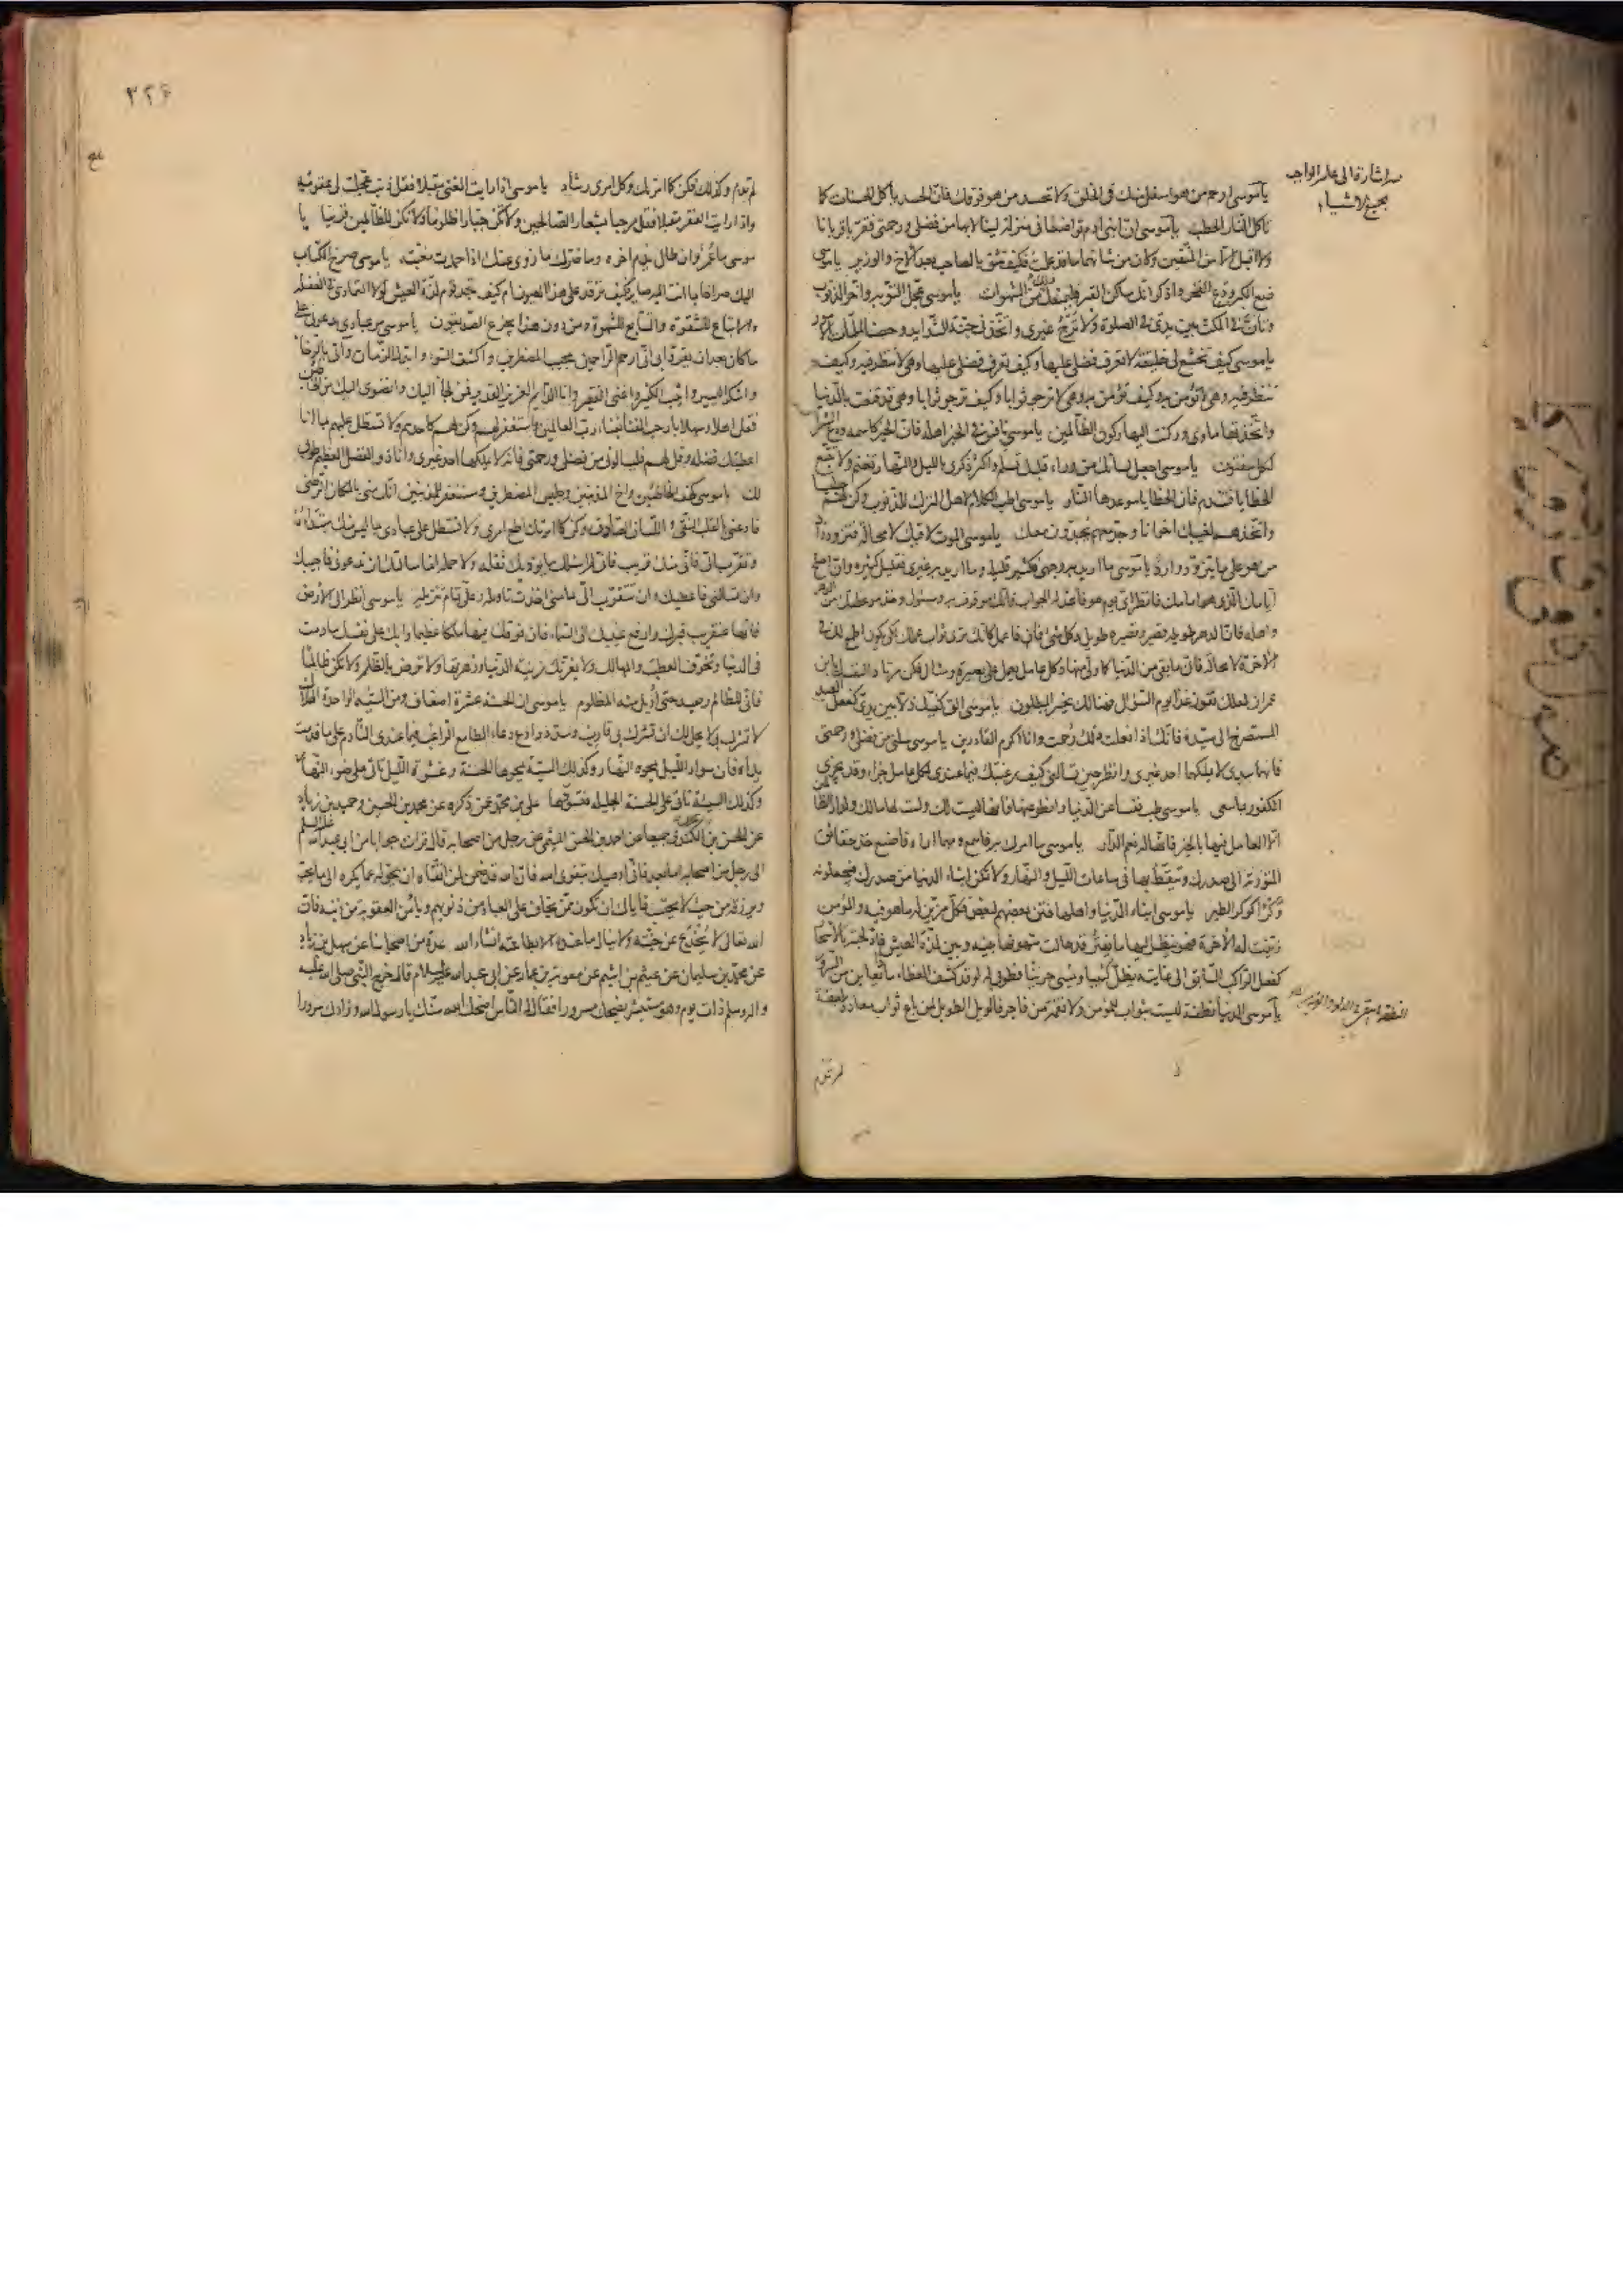 سر اشارة الى علم الواجب
بجميع الاشياء
يا موسى ارحم من هو اسفل منك في الخلق ولا تحسد من هو فوقك فان الحسد يأكل الحسنات كما
تأكل النار الحطب يا موسى ان ابنى ادم تواضعا في منزلة لينالا بها من فضلى ورحمتى فقربا قربانا
ولا اقبل الا من المتقين وكان من شانهما ما قد علمت فكيف تثق بالصاحب بعد الاخ والوزير يا موسى
ضع الكبر ودع الفخر واذكر انك ساكن القبر فليمنعك ذلك من الشهوات يا موسى عجل التوبة واخر الذنب
وتأن في المكث بين يدى في الصلوة ولا ترج غيرى واتخذنى جنة للشدايد وحصنا لملمات الامور
يا موسى كيف تخشع لى خليقة لا تعرف فضلى عليها وكيف تعرف فضلى عليها وهى لا تنظر فيه وكيف
تنظر فيه وهى لا تؤمن به وكيف تؤمن به وهى لا ترجو ثوابا وكيف ترجو ثوابا وهى قد قنعت بالدنيا
واتخذتها ماوى وركنت اليها ركون الظالمين يا موسى نافس في الخير اهله فان الخير كاسمه ودع الشر
لكل مفتون يا موسى اجعل لسانك من وراء قلبك تسلم واكثر ذكرى بالليل والنهار تغنم ولا تتبع
الخطايا فتندم فان الخطايا موعدها النار يا موسى اطب الكلام لاهل الترك للذنوب وكن لهم جليسا
واتخذهم لغيبك اخوانا وجد معهم يجدون معك يا موسى الموت لاقيك لا محالة فتزود زاد
من هو على ما يتزود وارد يا موسى ما اريد به وجهى فكثير قليله وما اريد به غيرى فقليل كثيره وان اصلح
ايامك الذى هو امامك فانظر اى يوم هو فاعد له الجواب فانك موقوف به ومسئول وخذ موعظتك من الدهر
واهله فان الدهر طويله قصير وقصيره طويل وكل شئ فان فاعمل كانك ترى ثواب عملك لكى يكون اطمع لك في
الاخرة لا محالة فان ما بقى من الدنيا كما ولى منها وكل عامل يعمل على بصيرة ومثال فكن مرتادا لنفسك يا بن
عمران لعلك تفوز غدا يوم السؤال فهنالك يخسر المبطلون يا موسى الق كفيك ذلا بين يدى كفعل العبد
المستصرخ الى سيده فانك اذا فعلت ذلك رحمت وانا اكرم القادرين يا موسى سلنى من فضلى ورحمتى
فانهما بيدى لا يملكهما احد غيرى وانظر حين تسالنى كيف رغبتك فيما عندى لكل عامل جزاء وقد يجزى
الكفور بما سعى يا موسى طب نفسا عن الدنيا وانطو عنها فانها ليست لك ولست لها مالك ولدار الظالمين
الا العامل فيها بالخير فانها له نعم الدار يا موسى ما امرك به فاسمع ومهما اراه فاصنع خذ حقائق
التورية الى صدرك وتيقظ بها في ساعات الليل والنهار ولا تمكن ابناء الدنيا من صدرك فيجعلونه
وكرا كوكر الطير يا موسى ابناء الدنيا واهلها فتن بعضهم لبعض فكل مزين له ما هو فيه والمؤمن
زينت له الاخرة فهو ينظر اليها ما يفتر قد حالت شهوتها بينه وبين لذة العيش فادلجته بالاسحار
كفعل الراكب السابق الى غايته يظل كئيبا ويمسى حزينا فطوبى له لو قد كشف الغطاء ماذا يعاين من السرور
يا موسى الدنيا نطفة ليست بثواب للمؤمن ولا نقمة من فاجر فالويل الطويل لمن باع ثواب معاده بلعقة
لم تدم
٣٢۶
لم تدم وكذلك فكن كما امرتك وكل امرى رشاد يا موسى اذا رايت الغنى مقبلا فقل ذنب عجلت لى عقوبته
واذا رايت الفقر مقبلا فقل مرحبا بشعار الصالحين ولا تكن جبارا ظلوما ولا تكن للظالمين قرينا يا
موسى ما عمر وان طال يذم اخره وما ضرك ما زوى عنك اذا حمدت مغبته يا موسى صرخ الكتاب
اليك صراخا بما انت اليه صاير فكيف ترقد على هذا العيون ام كيف يجد قوم لذة العيش لولا التمادى في الغفلة
والاتباع للشقوة والتتابع للشهوة ومن دون هذا يجزع الصديقون يا موسى مر عبادى يدعونى على
ما كان بعد ان يقروا لى انى ارحم الراحمين مجيب المضطرين واكشف السوء وابدل الزمان واتى بالرخاء
واشكر اليسير واثيب الكثير واغنى الفقير وانا الدايم العزيز القدير فمن لجأ اليك وانضوى اليك من الخاطئين
فقل اهلا وسهلا يا رحب الفناء بفناء رب العالمين واستغفر لهم وكن لهم كاحدهم ولا تستطل عليهم بما انا
اعطيتك فضله وقل لهم فليسالونى من فضلى ورحمتى فانه لا يملكها احد غيرى وانا ذو الفضل العظيم طوبى
لك يا موسى كهف الخاطئين واخ المذنبين وجليس المضطرين ومستغفر للمذنبين انك منى بالمكان الرضى
فادعنى بالقلب النقى واللسان الصادق وكن كما امرتك اطع امرى ولا تستطل على عبادى بما ليس منك مبتداه
وتقرب الى فانى منك قريب فانى لم اسئلك ما يؤذيك ثقله ولا حمله انما سالتك ان تدعونى فاجيبك
وان تسالنى فاعطيك وان تتقرب الى بما منى اخذت تاويله وعلى تمام تنزيله يا موسى انظر الى الارض
فانها عن قريب قبرك وارفع عينيك الى السماء فان فوقك فيها ملكا عظيما وابك على نفسك ما دمت
في الدنيا وتخوف العطب والمهالك ولا يغرنك زينة الدنيا وزهرتها ولا ترض بالظلم ولا تكن ظالما
فانى للظالم رصيد حتى اديل منه المظلوم يا موسى ان الحسنة عشرة اضعاف ومن السيئة الواحدة الهلاك
لا تشرك بى لا يحل لك ان تشرك بى قارب وسدد وادع دعاء الطامع الراغب فيما عندى النادم على ما قدمت
يداه فان سواد الليل يمحوه النهار وكذلك السيئة يمحوها الحسنة وعشوة الليل تاتى على ضوء النهار
وكذلك السيئة تاتى على الحسنة الجليلة فتسودها على بن محمد عمن ذكره عن محمد بن الحسين وحميد بن زياد
عن الحسن بن محمد الكندى جميعا عن احمد بن الحسن الميثمى عن رجل من اصحابه قال قرات جوابا من ابى عبد الله عليه السلم
الى رجل من اصحابه اما بعد فانى اوصيك بتقوى الله فان الله قد ضمن لمن اتقاه ان يحوله عما يكره الى ما يحب
ويرزقه من حيث لا يحتسب فاياك ان تكون ممن يخاف على العباد من ذنوبهم ويامن العقوبة من ذنبه فان
الله تعالى لا يخدع عن جنته ولا ينال ما عنده الا بطاعته انشاء الله عدة من اصحابنا عن سهل بن زياد
عن محمد بن سليمان عن عيثم بن اشيم عن معوية بن عمار عن ابى عبد الله عليه السلام قال خرج النبى صلى الله عليه
واله وسلم ذات يوم وهو مستبشر يضحك سرورا فقال له الناس اضحك الله سنك يا رسول الله وزادك سرورا